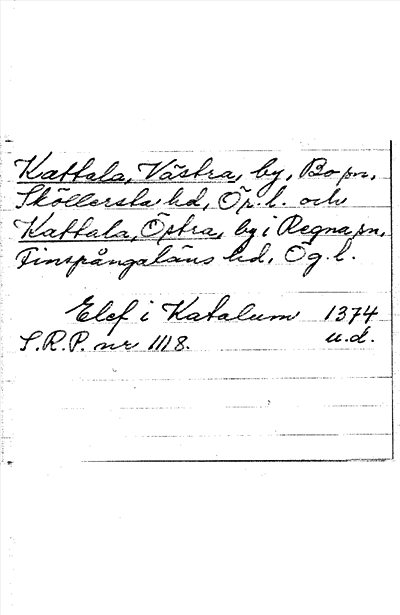 Kattala, Västra, by, Bo sn,
Sköllersta hd, Ör. l. och
Kattala, Östra, by i Regna sn,
Finspångaläns hd, Ög. l.
Elef i Katalum 1374
S.R.P. nr 1118. u.d.